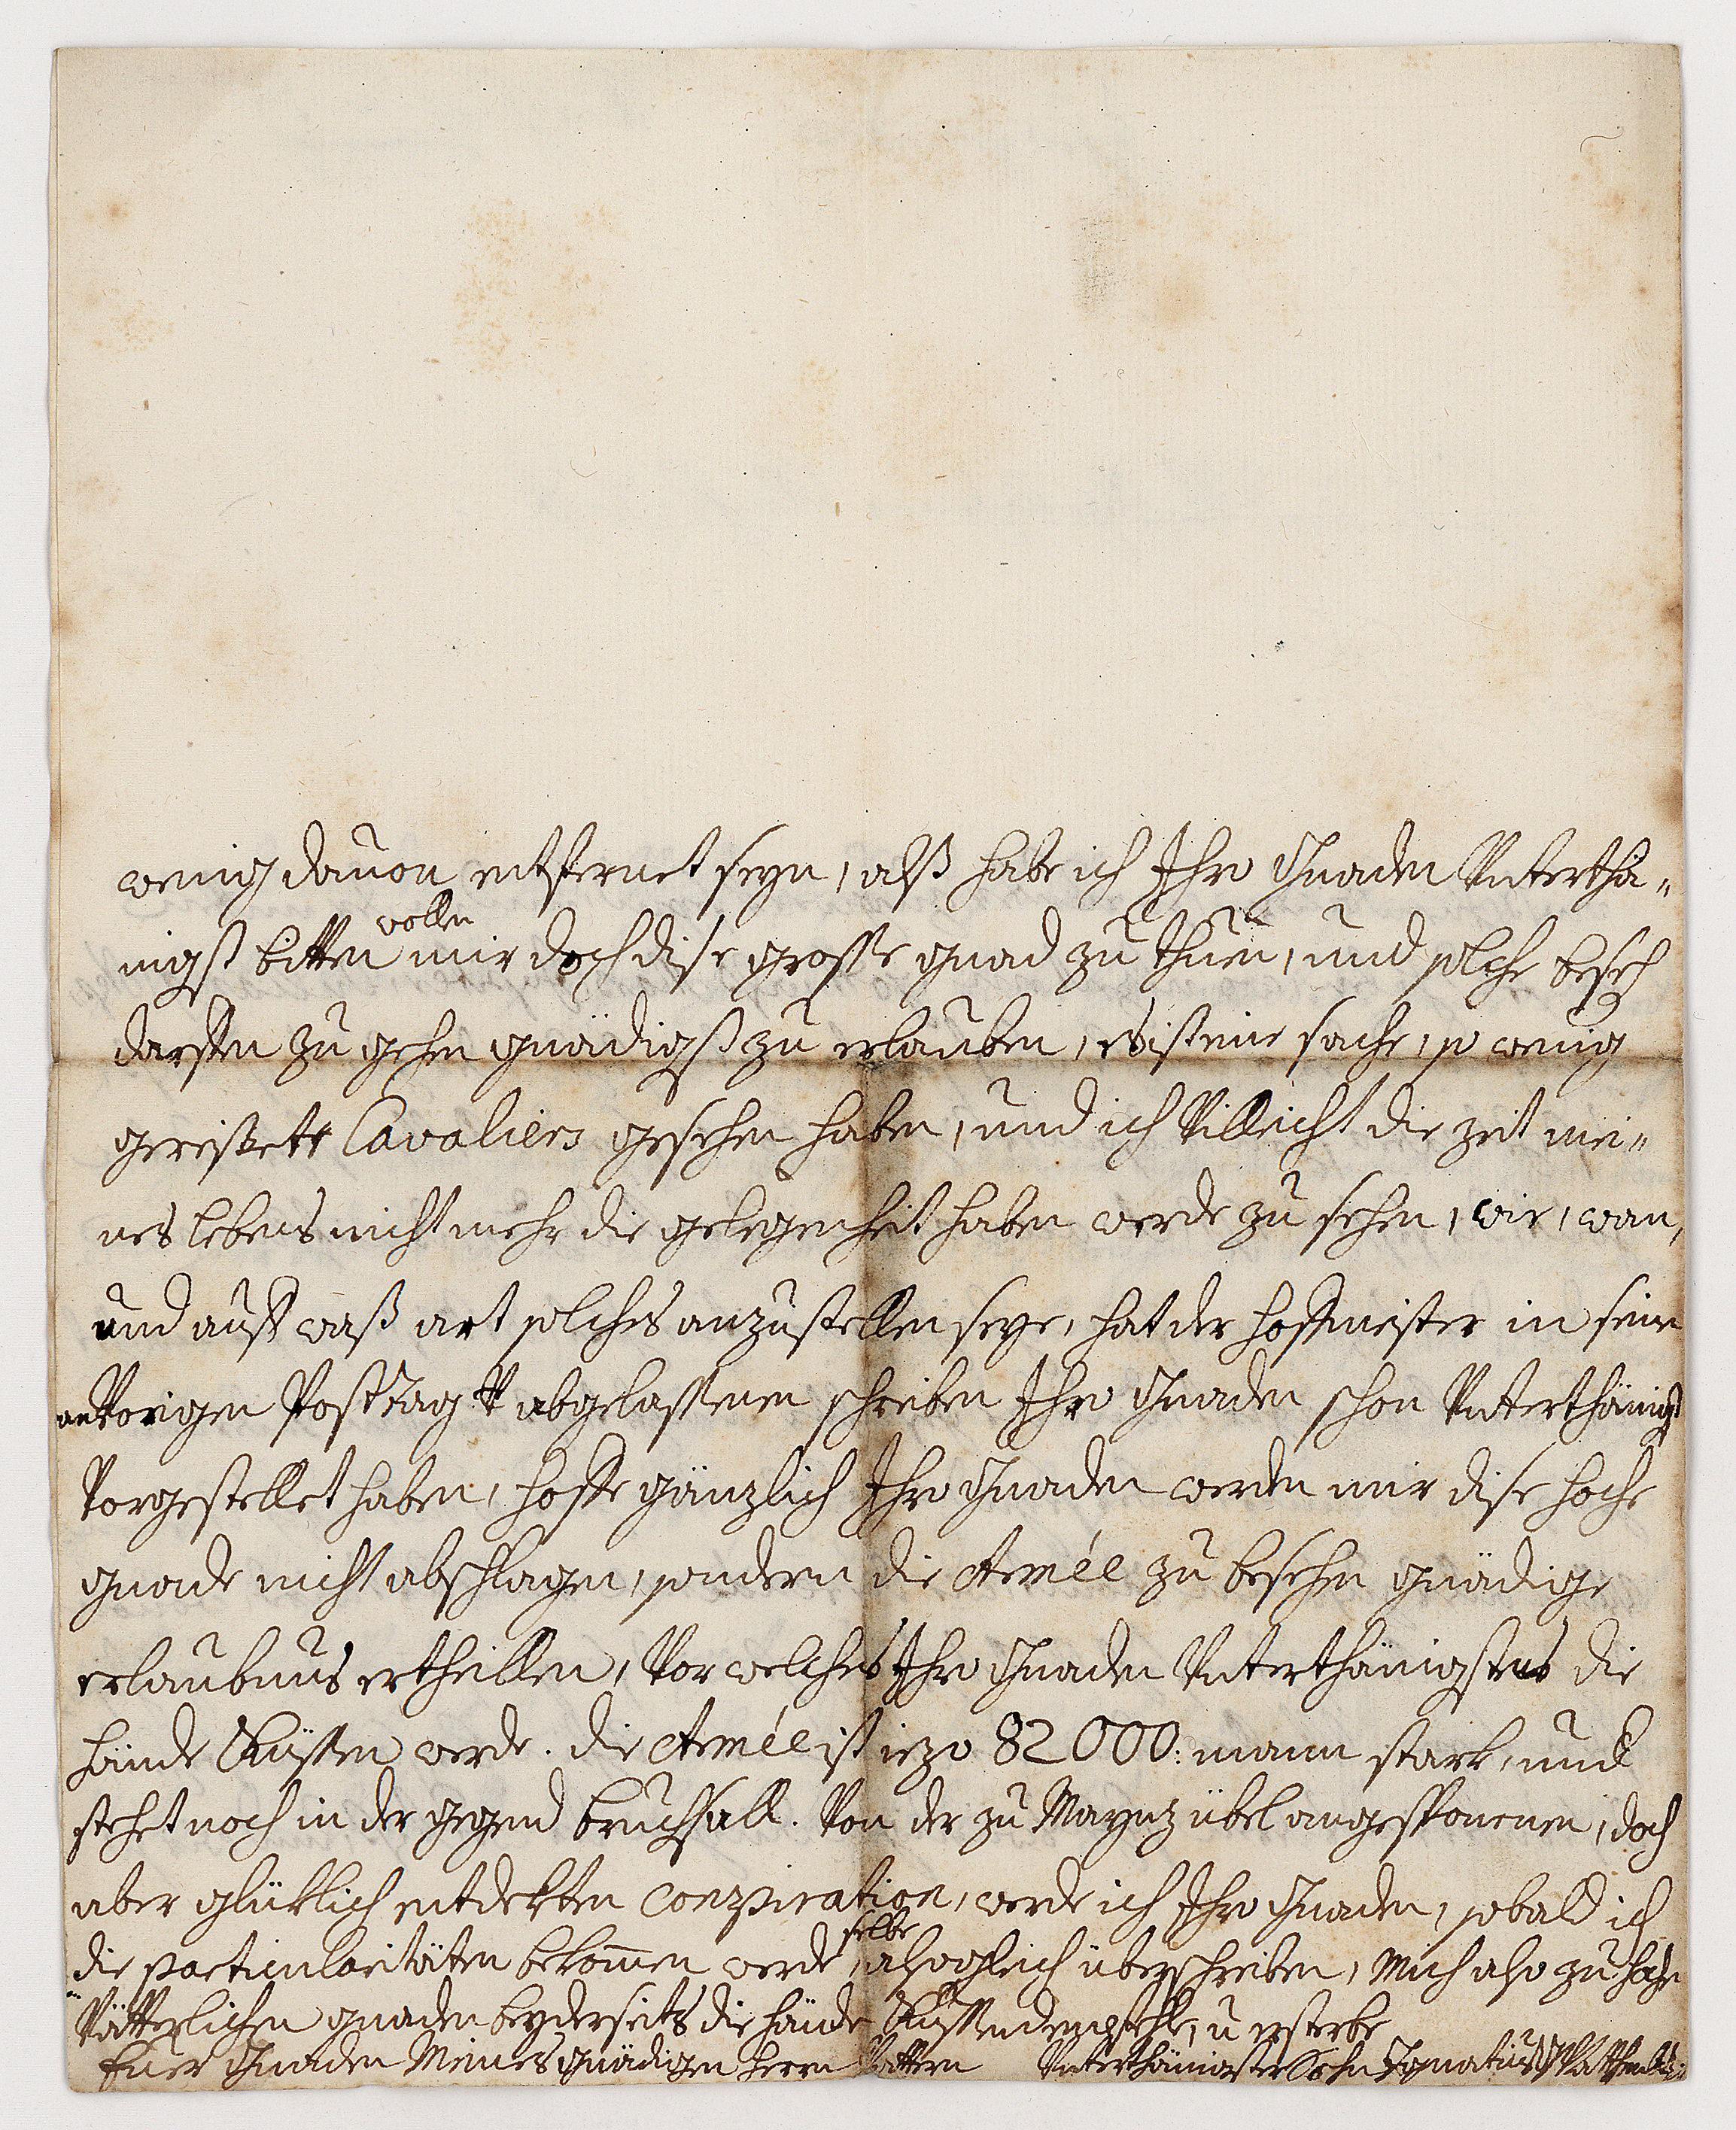 wenig davon entfernet seyn, alß habe ich Ihro Gnaden Unterthä„
nigst bitten wollen mir doch dise grosse gnad zu thuen, und solche beseh
darffen zu gehen gnädigst zu erlauben, es ist eine sache, so wenig
gereißete Cavaliers gesehen haben, und ich Villeicht die zeit mei„
nes lebens nicht mehr die gelegenheit haben werde zu sehen, wie, wan,
und auff waß art solches anzustellen seye, hat der hoffmeister in seinen
an Vorigen Posttag abgelassenen schreiben Ihro Gnaden schon Unterthänigst
Vorgestellet haben, hoffe gänzlich Ihro Gnaden werden mir dise hoche
gnade nicht abschlagen, sondern die Armée zu besehen gnädige
erlaubnus ertheillen, Vor welches Ihro Gnaden Unterthänigstens die
hände Küssen werde. die Armée ist iezo 82000: mann stark, und
stehet noch in der gegend bruchsall. Von der zu Maynz übel angesponenen, doch
aber glüklich entdekten conspiration, werde ich Ihro Gnaden, sobald ich
die particularitäten bekomen werde, selbe alsogleich überschreiben, Mich also zu hohen
Vätterlichen gnaden beyderseits die hände Küssend empfehle, u ersterbe
Euer Gnaden Meines gnädigen herrn Vattern Unterthänigster Sohn Ignatius